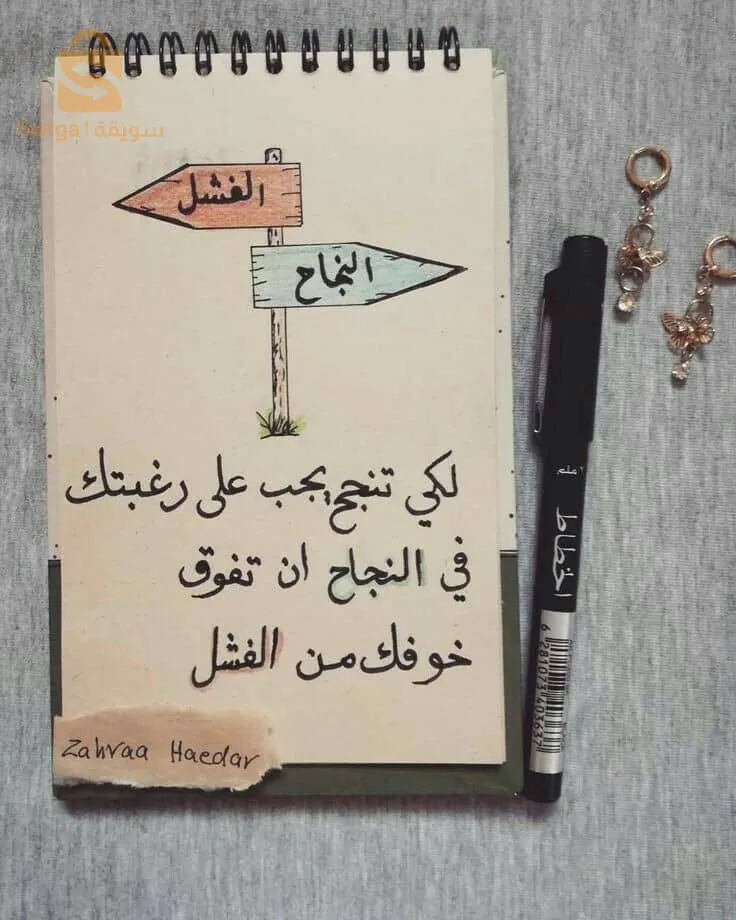 سويقة | Sw
الفشل
النجاح
لكي تنجح يجب على رغبتك
في النجاح ان تفوق
خوفك من الفشل
Zahraa Haedar
ملم
الخطاط
6281073403637